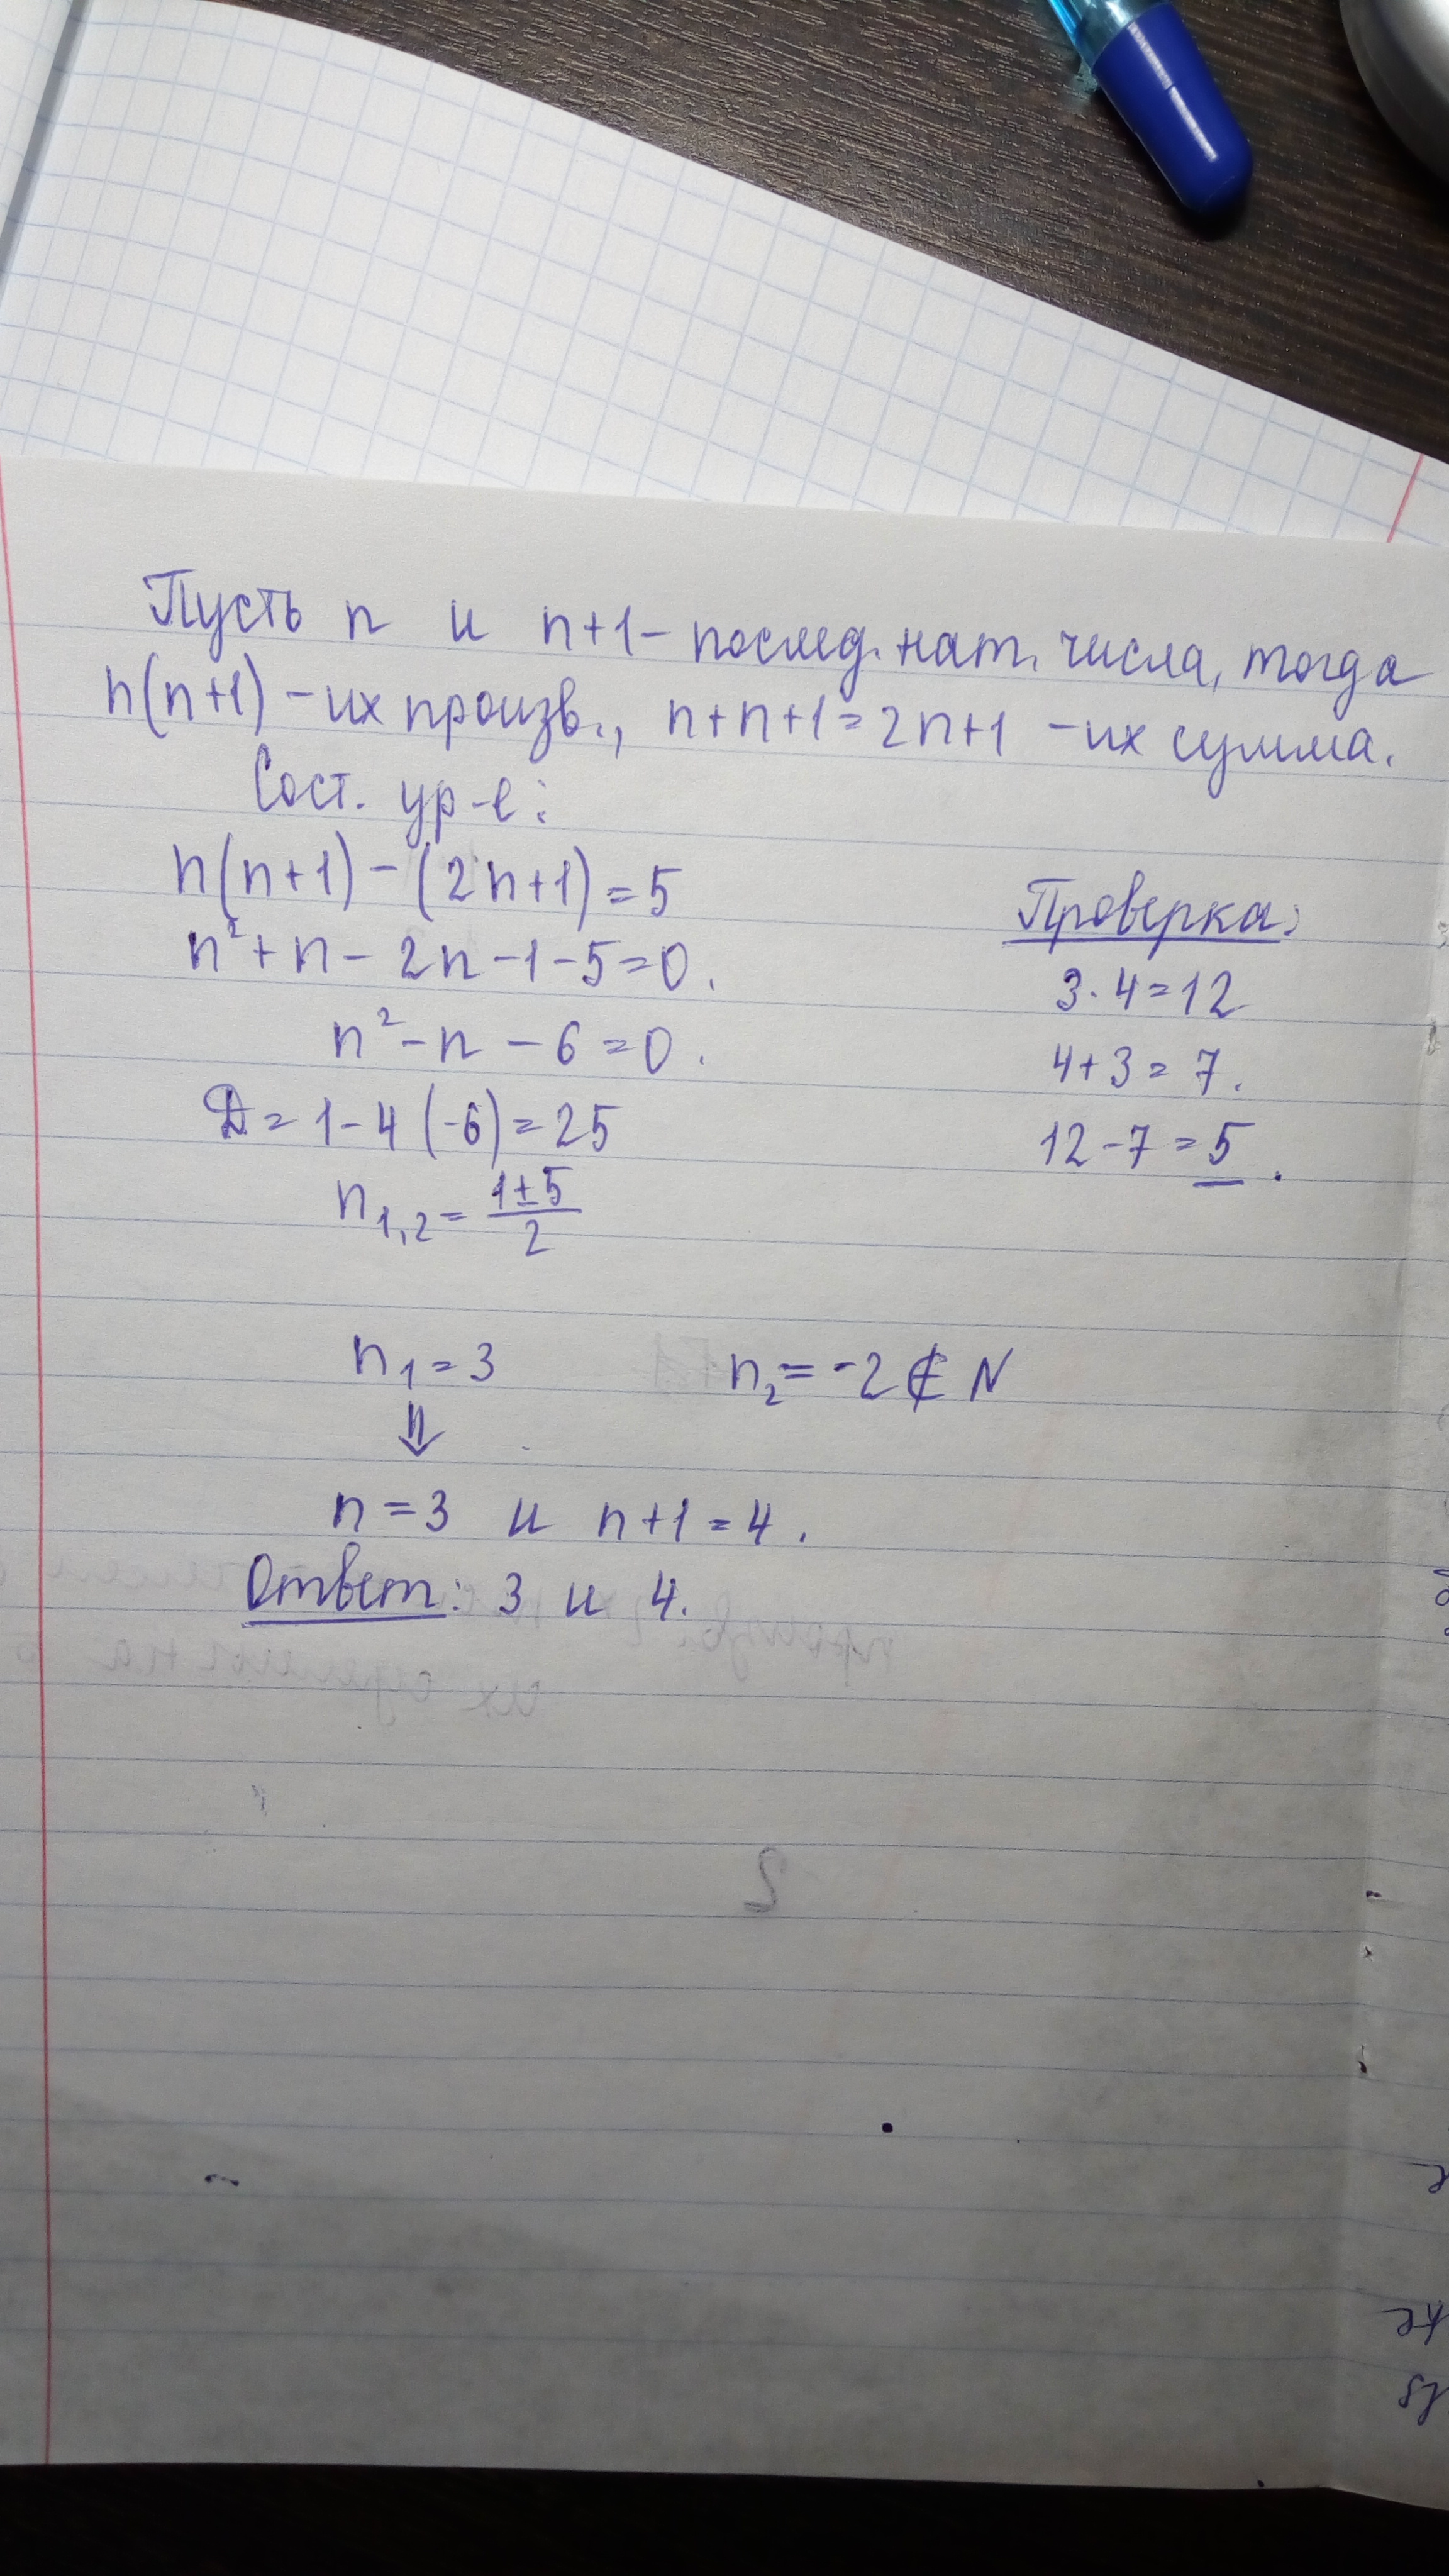 Пусть n и n+1 – послед. нат. числа, тогда
n(n+1) – их произв., n+n+1=2n+1 – их сумма.
Сост. ур-е:
n(n+1) – (2n+1) = 5
n²+n – 2n –1 –5=0.
n² – n – 6 =0.
D = 1 – 4 (-6) = 25
n₁,₂ = (1±5)/2
n₁ = 3 n₂ = -2 ∉ N
⇓
n = 3 и n+1 = 4.
Ответ: 3 и 4.
Проверка:
3·4=12
4+3 = 7.
12 – 7 = 5.